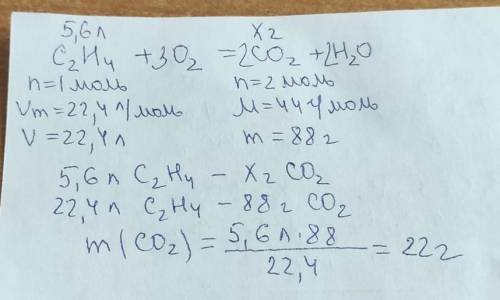 5,6л xг
C₂H₄ + 3O₂ = 2CO₂ + 2H₂O
n=1моль n=2моль
Vm=22,4л/моль M=44г/моль
V=22,4л m=88г
5,6л C₂H₄ - xг CO₂
22,4л C₂H₄ - 88г CO₂
m(CO₂) = 5,6л·88 / 22,4 = 22г